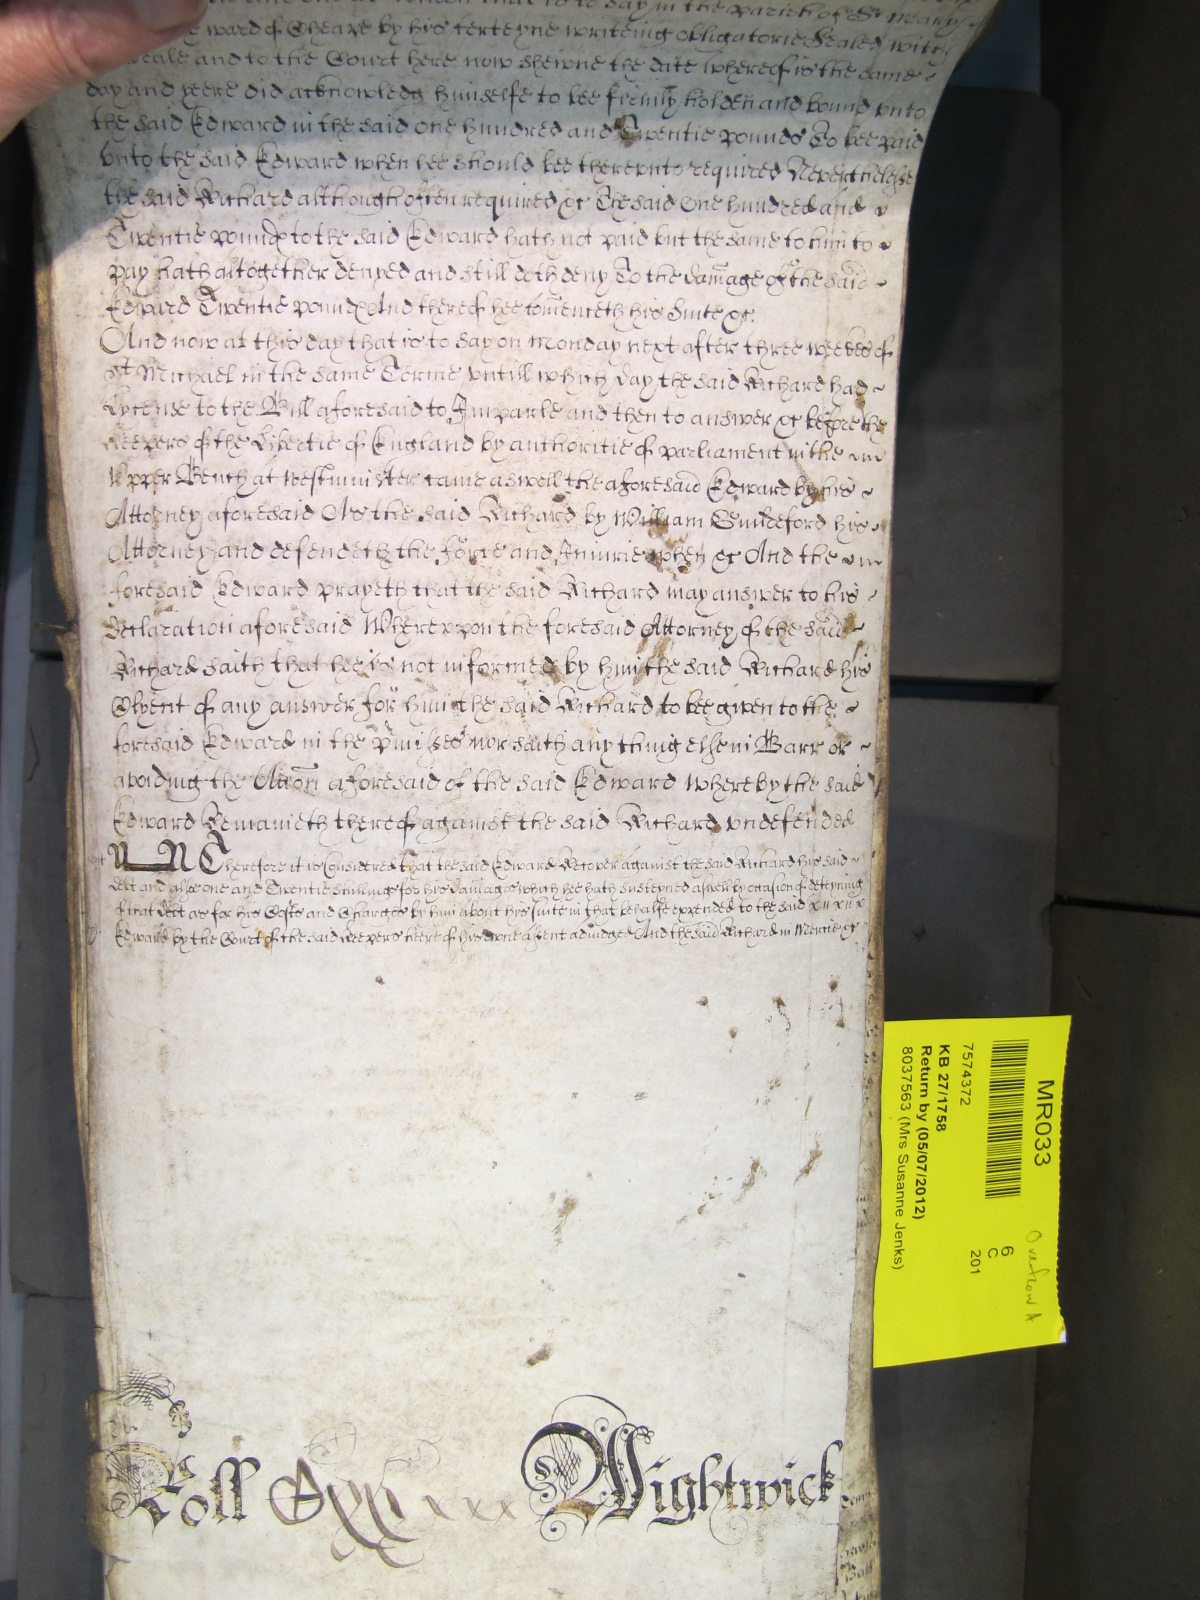 at London that is to say in the parish of St Mary
ward of Cheape by his certeyne writeing obligatorie Sealed with
Seale and to the Court here now shewne the date whereof is the same
day and yeere did acknowledg himselfe to bee firmly holden and bound unto
the said Edward in the said one hundred and Twentie pounds To bee paid
unto the said Edward when hee should bee thereunto required Neverthelesse
the said Richard although often required &c The said One hundred and
Twentie pounds to the said Edward hath not paid but the same to him to
pay hath altogether denyed and still doth deny To the damage of the said
Edward Twentie pounds And thereof hee comenceth his Suite &c.
And now at this day that is to say on Monday next after three weekes of
St Michael in the same Terme untill which day the said Richard had
Lycense to the Bill aforesaid to Imparle and then to answer &c before the
Keepers of the Libertie of England by authoritie of parliament in the
Upper Bench at Westminister came aswell the aforesaid Edward by his
Attorney aforesaid As the said Richard by William his
Attorney and defendeth the force and Iniurie when &c And the
foresaid Edward prayeth that the said Richard may answer to his
declaration aforesaid Whereupon the foresaid Attorney of the said
Richard saith that hee is not informed by him the said Richard his
Clyent of any answer for him the said Richard to bee given to the
foresaid Edward in the pmisses nor saith any thing else in Barr or
avoiding the Accon aforesaid of the said Edward Whereby the said
Edward Remaineth thereof against the said Richard undefended
Therefore it is Considered that the said Edward Recover against the said Richard his said
Debt and alsoe one and Twentie shillings for his damages which hee hath susteyned aswell by occasion of deteyning
of that Debt as for his Costs and Charges by him about his suite in that behalfe expended to the said
Edward by the Court of the said Keepers heere of his owne assent adiudged And the said Richard in Mercie &c
Roll Wightwick
MR033
7574372
KB 27/1758
Return by (05/07/2012)
8037563 (Mrs Susanne Jenks)
6
C
201
Overflow A